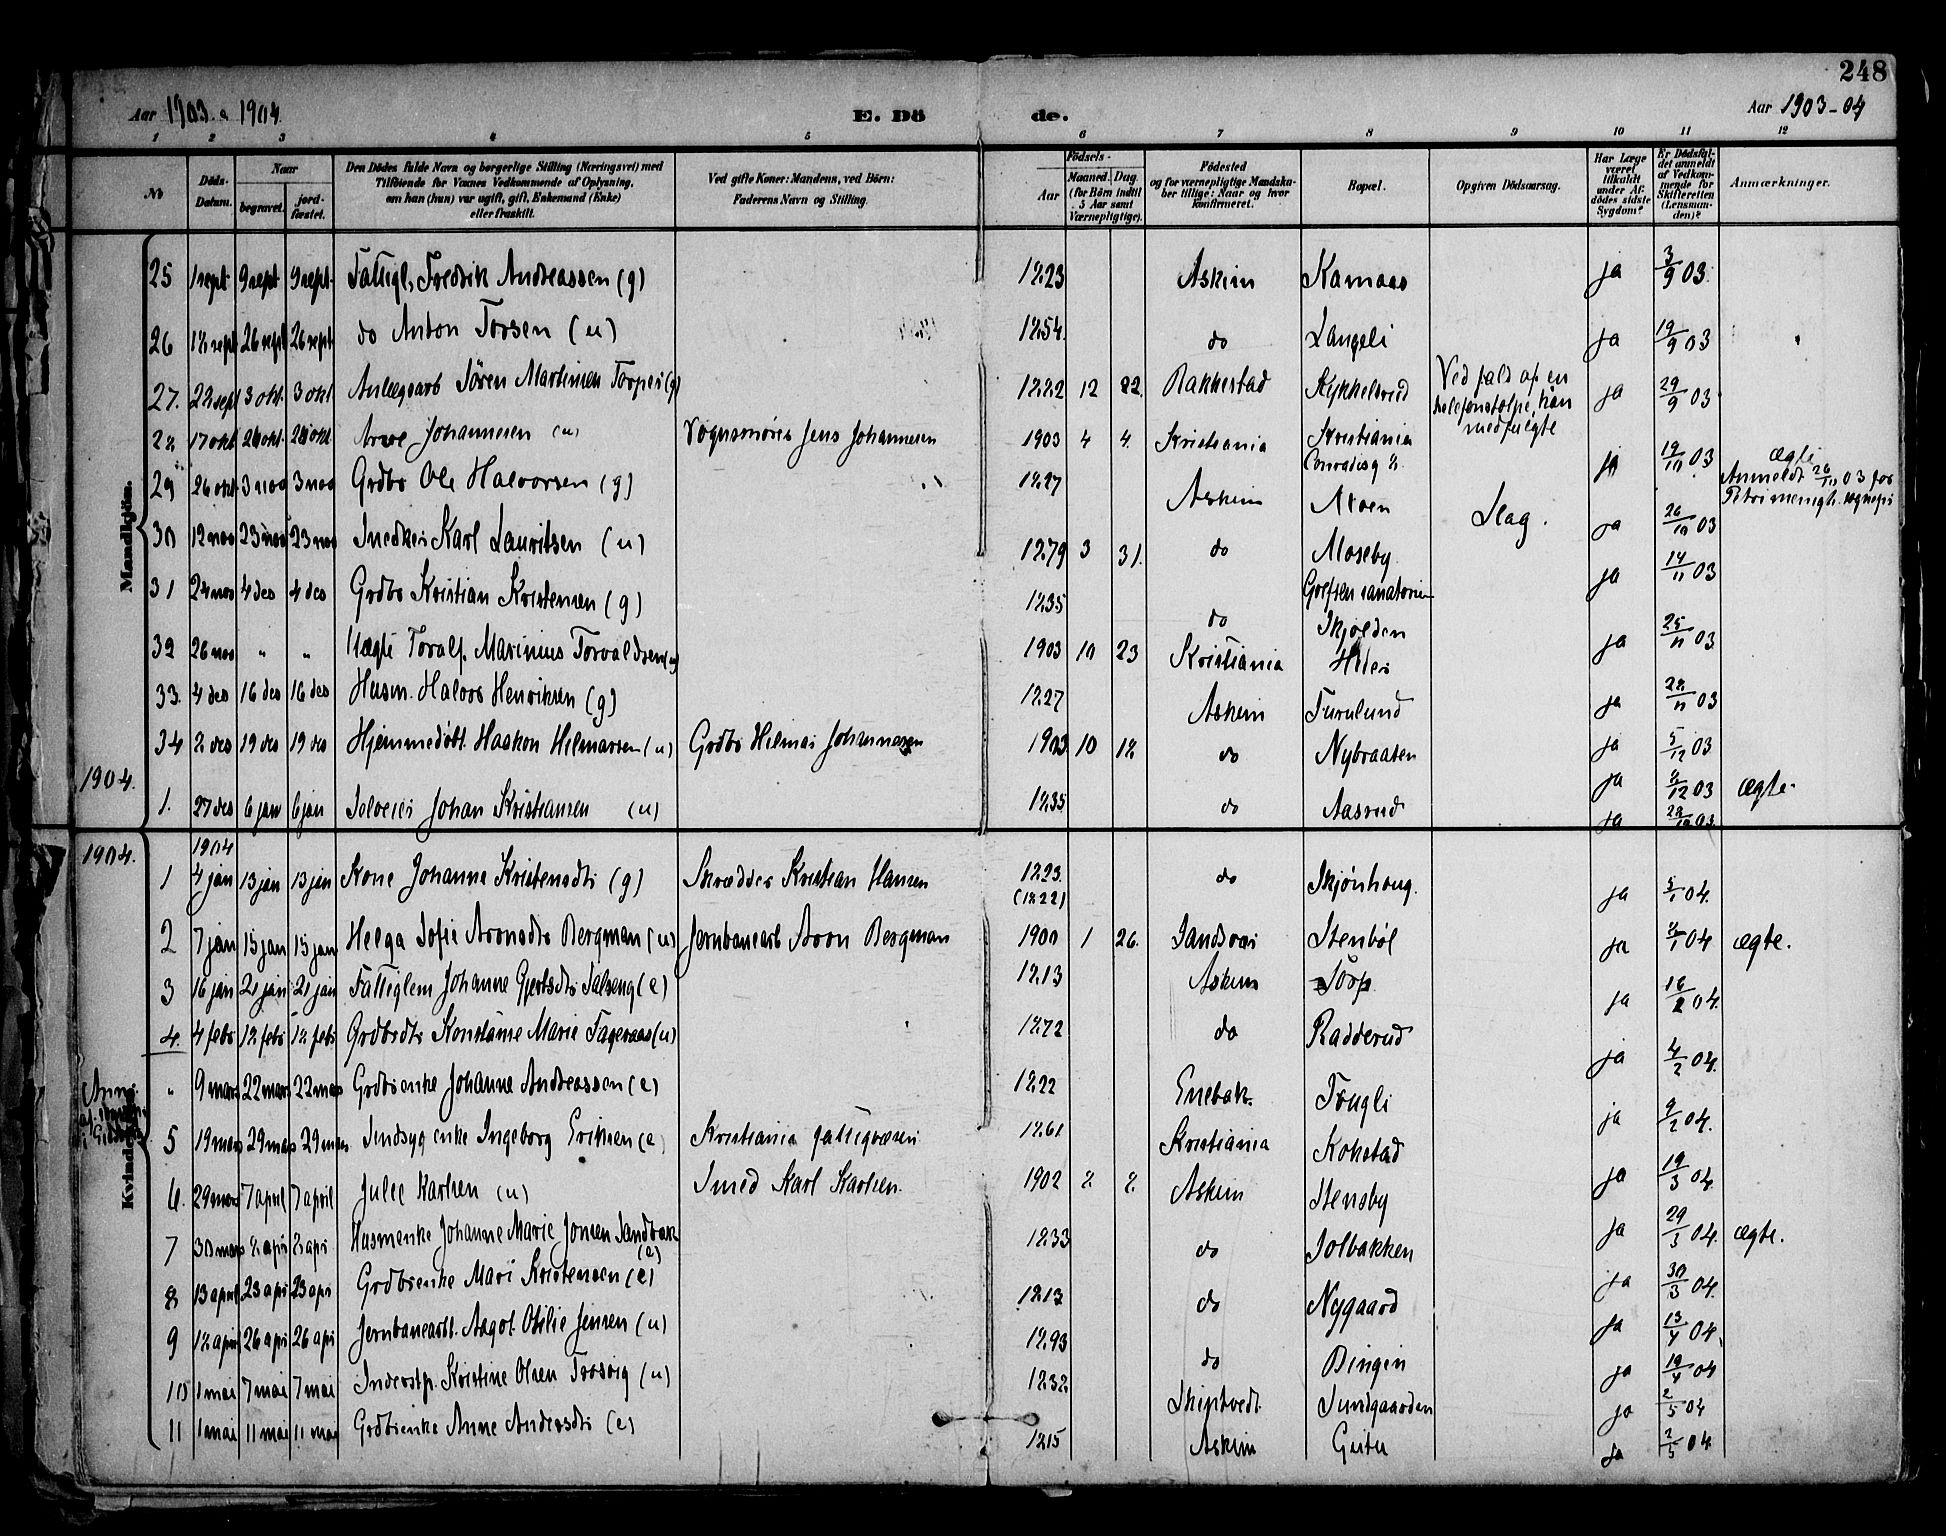 248
Aar 1903 & 1904. E. Dö de. Aar 1903-04
1 2 3 4 5 6 7 8 9 10 11 12
No
Döds-Datum.
Naar
begravet.
jord-fæstet.
Den Dödes fulde Navn og borgerlige Stilling (Næringsvei) med
Tilföiende for Voxnes Vedkommende af Oplysning,
om han (hun) var ugift, gift, Enkemand (Enke)
eller fraskilt.
Ved gifte Koner: Mandens, ved Börn:
Faderens Navn og Stilling.
Födsels-
Aar
Maaned. Dag.
(for Börn indtil
5 Aar samt
Værnepligtige).
Födested
og for værnepligtige Mandska-
ber tillige: Naar og hvor
konfirmeret.
Bopæl.
Opgiven Dödsaarsag.
Har Læge
været
tilkaldt
under Af-
dödes sidste
Sygdom?
Er Dödsfal-
det anmeldt
af Vedkom-
mende for
Skifteretten
(Lensman-
den)?
Anmærkninger.
Mandkjön.
25 1 sept 9 sept 9 sept. Fattigl. Fredrik Andreassen (g) 1823 Askim Kamaas ja 3/9 03.
26 18 sept 26 sept 26 sept do Anton Torsen (u) 1854. do Langeli ja 19/9 03
27. 22 sept 3 okt 3 okt Anlægsarb Sören Martinsen Torper (g) 1882 12 22. Rakkestad Kykkelsrud Ved fald af en telefonstolpe, han medfulgte ja 29/9 03
28 17 okt 26 okt 26 okt Arne Johannesen (u) Vognsmörer Jens Johannesen 1903 4 4. Kristiania Kristiania Conradisg 8. ja 19/10 03 ægte Anmeldt 26/10 03 for Petri menigh. sogнepr
29 26 okt 3 nov 3 nov Grdbr Ole Halvorsen (g) 1827 Askim Moen Slag. ja 26/10 03
30 12 nov 23 nov 23 nov Snedker Karl Lauritsen (u) 1879 3 31. do Moseby Grefsen sanatorium ja 14/11 03
31 24 nov 4 des 4 des Grdbr Kristian Kristensen (g) 1835 do Skjolden ja 25/11 03
32 26 nov " " Uægte Toralf Marinius Torvaldsen (u) 1903 10 23 Kristiania Hoter ja 28/11 03
33. 4 des 16 des 16 des Husm. Halvor Henriksen (g) 1827 Askim Furulund ja 5/12 03
34 2 des 19 des 19 des Hjemmedöbt. Haakon Hilmarsen (u) Grdbr Hilmar Johannesen 1903 10 18 do Nybraaten ja 8/12 03 ægte.
1904. 1. 27 des 6 jan 6 jan Selveier Johan Kristiansen (u) 1835 do Aasrud ja 28/12 03
1904. Kvindekjön.
1904
1 4 jan 13 jan 13 jan Kone Johanne Kristensdtr (g) Skrædder Kristian Hansen 1823. (1822) do Skjönhaug. ja 5/1 04.
2 7 jan 15 jan 15 jan Helga Sofie Aronsdtr Bergman (u) Jernbanearb Aron Bergman 1900 1 26. Sandsvær Stenböl ja 8/1 04 ægte.
3 16 jan 21 jan 21 jan Fattiglem Johanne Gjertsdtr Salseng (e) 1813 Askim Torp. ja 16/2 04.
4. 4 febr 12 febr 12 febr Grdbrdtr Konstanse Marie Fageraas (u) 1872 do Radderud ja 4/2 04.
" 9 mars 22 mars 22 mars Grdbrenke Johanne Andreassen (e) 1822 Enebak. Tougli ja 9/2 04.
5 19 mars 29 mars 29 mars Sindsyg enke Ingeborg Eriksen (e) Kristiania fattigvæsen 1861 Kristiania Kokstad ja 19/3 04.
6. 29 mars 7 april 7 april Julie Karlsen (u) Smed Karl Karlsen. 1902 8 8. Askim Stensby ja 29/3 04. ægte.
7 30 mars 8 apr 8 apr Husmenke Johanne Marie Jonsen Sandbak (e) 1833 do Solbakken ja 30/3 04.
8 13 april 23 apr 23 apr Grdbrenke Mari Kristensen (e) 1813 do Nygaard ja 13/4 04.
9 18 apr 26 apr 26 apr Jernbanearb. Aagot Otilie Jensen (u) 1893 do Bingen ja 19/4 04
10 1 mai 7 mai 7 mai Inderstp. Kristine Olsen Trosvig (u) 1832 Skiptvedt Sundgaarden ja 2/5 04
11 1 mai 11 mai 11 mai Grdbrenke Anne Andersdtr (e) 1815 Askim Guter ja 2/5 04